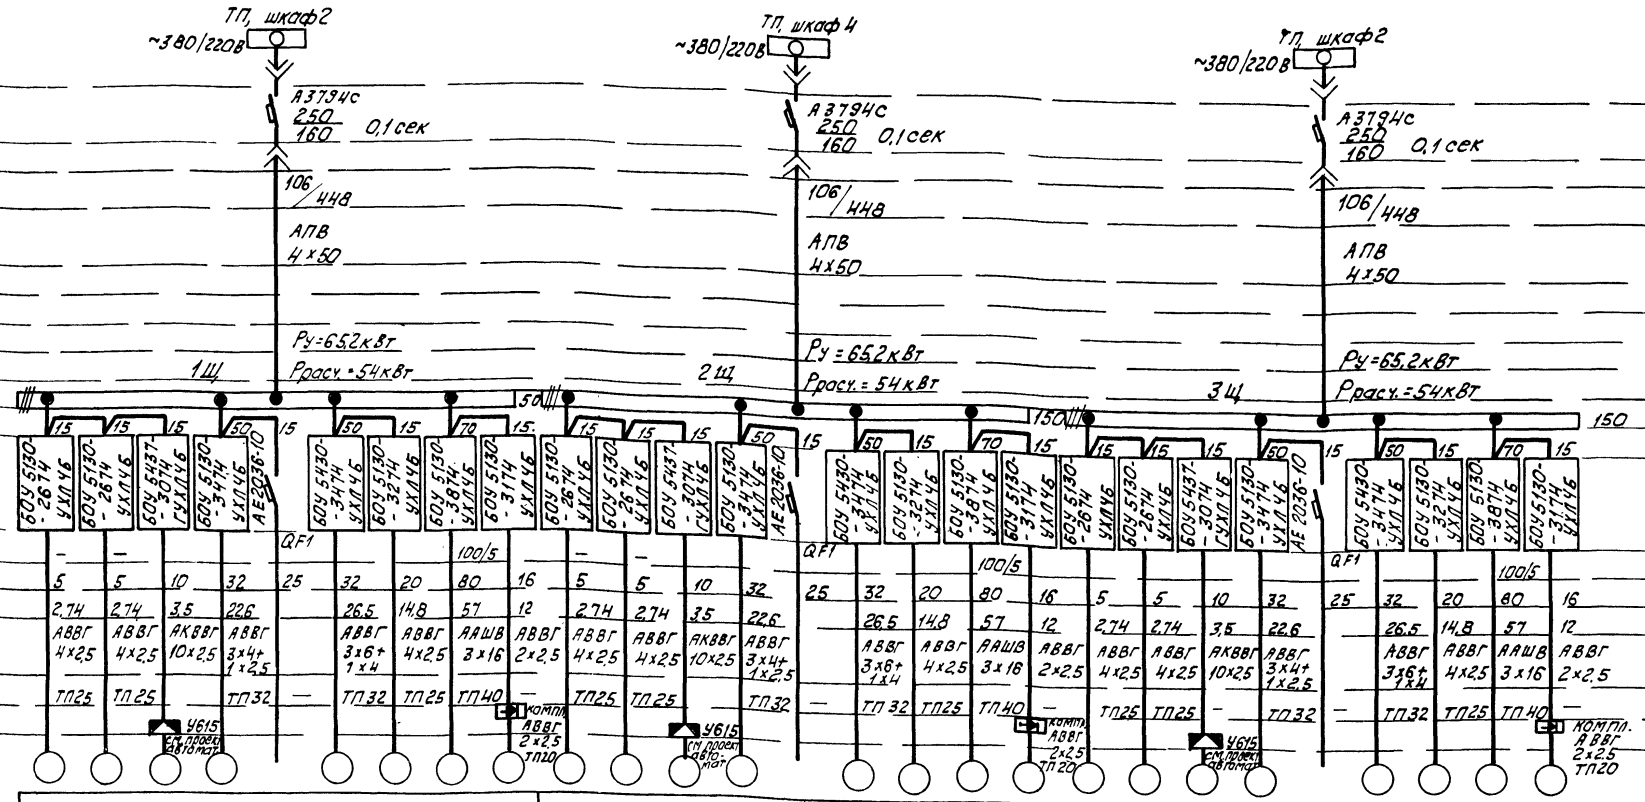 ТП, шкаф 2
~380/220В
А3794С
250
160
0,1 сек
106/448
АПВ
4х50
Ру=65,2кВт
Ррасч.=54кВт
1Щ
ТП, шкаф 4
~380/220В
А3794С
250
160
0,1 сек
106/448
АПВ
4х50
Ру=65,2кВт
Ррасч.=54кВт
2Щ
ТП, шкаф 2
~380/220В
А3794С
250
160
0,1 сек
106/448
АПВ
4х50
Ру=65,2кВт
Ррасч.=54кВт
3Щ
50
150
150
15 15 15 50 15 50 15 70 15
БОУ 5130-
- 2674
УХЛ4Б
БОУ 5130-
- 2674
УХЛ4Б
БОУ 5437-
- 3074
ГУХЛ4Б
БОУ 5130-
- 3474
УХЛ4Б
АЕ2036-10
QF1
БОУ 5430-
- 3474
УХЛ4Б
БОУ 5130-
- 3274
УХЛ4Б
БОУ 5130-
- 3874
УХЛ4Б
БОУ 5130-
- 3174
УХЛ4Б
15 15 15 50 15 50 15 70 15
БОУ 5130-
- 2674
УХЛ4Б
БОУ 5130-
- 2674
УХЛ4Б
БОУ 5437-
- 3074
ГУХЛ4Б
БОУ 5130-
- 3474
УХЛ4Б
АЕ2036-10
QF1
БОУ 5430-
- 3474
УХЛ4Б
БОУ 5130-
- 3274
УХЛ4Б
БОУ 5130-
- 3874
УХЛ4Б
БОУ 5130-
- 3174
УХЛ4Б
15 15 15 50 15 50 15 70 15
БОУ 5130-
- 2674
УХЛ4Б
БОУ 5130-
- 2674
УХЛ4Б
БОУ 5437-
- 3074
УХЛ4Б
БОУ 5130-
- 3474
УХЛ4Б
АЕ2036-10
QF1
БОУ 5430-
- 3474
УХЛ4Б
БОУ 5130-
- 3274
УХЛ4Б
БОУ 5130-
- 3874
УХЛ4Б
БОУ 5130-
- 3174
УХЛ4Б
- - - 100/5 - - - 100/5 - - - 100/5
5 5 10 32 25 32 20 80 16 5 5 10 32 25 32 20 80 16 5 5 10 32 25 32 20 80 16
2,74 2,74 3,5 22,6 26,5 14,8 57 12 2,74 2,74 3,5 22,6 26,5 14,8 57 12 2,74 2,74 3,5 22,6 26,5 14,8 57 12
АВВГ АВВГ АКВВГ АВВГ АВВГ АВВГ ААШВ АВВГ АВВГ АВВГ АКВВГ АВВГ АВВГ АВВГ ААШВ АВВГ АВВГ АВВГ АКВВГ АВВГ АВВГ АВВГ ААШВ АВВГ
4х2,5 4х2,5 10х2,5 3х4+ 3х6+ 4х2,5 3х16 2х2,5 4х2,5 4х2,5 10х2,5 3х4+ 3х6+ 4х2,5 3х16 2х2,5 4х2,5 4х2,5 10х2,5 3х4+ 3х6+ 4х2,5 3х16 2х2,5
1х2,5 1х4 1х2,5 1х4 1х2,5 1х4
ТП25 ТП25 ТП32 - ТП32 ТП25 ТП40 - ТП25 ТП25 ТП32 - ТП32 ТП25 ТП40 ТП25 ТП25 ТП32 - ТП32 ТП25 ТП40
У615
см. проект
автомат.
компл.
АВВГ
2х2,5
ТП20
У615
см. проект
авто-
мат.
компл.
АВВГ
2х2,5
ТП20
У615
см. проект
автомат.
компл.
АВВГ
2х2,5
ТП20